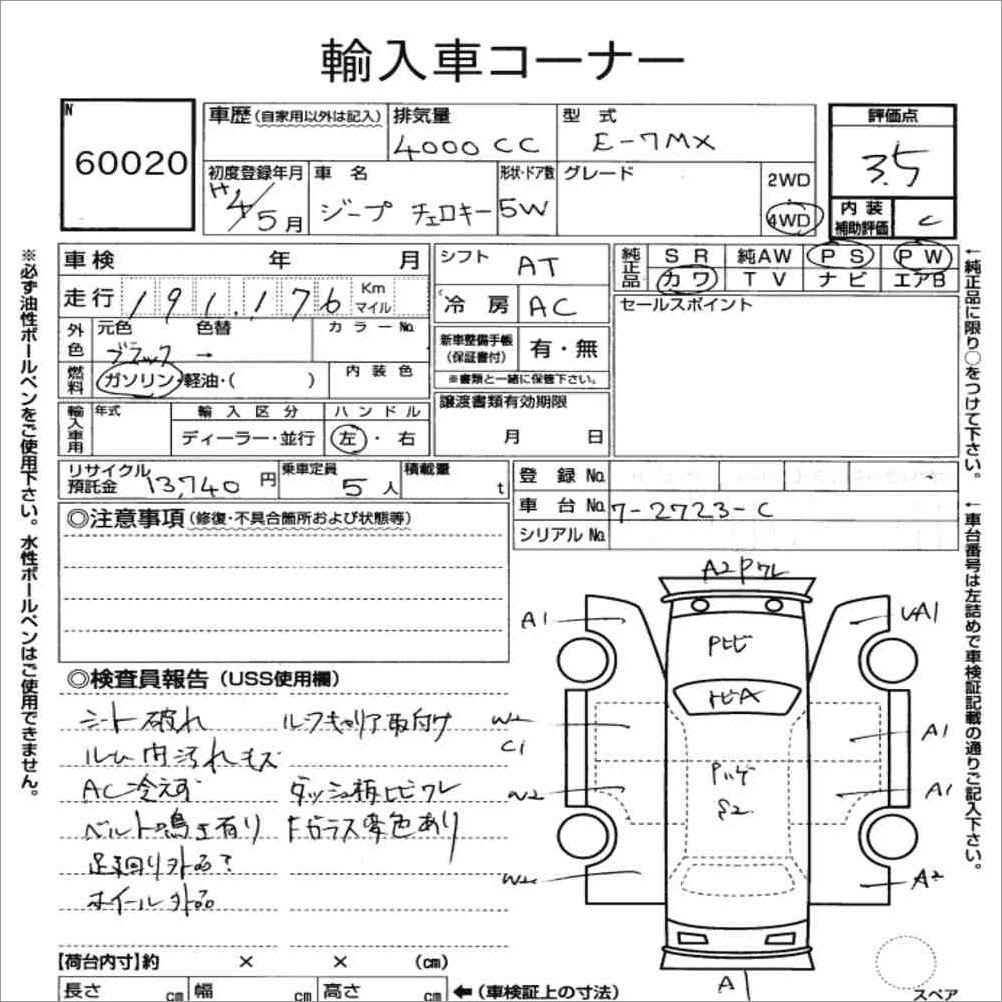 輸入車コーナー
N
60020
車歴(自家用以外は記入)
排気量
4000 CC
型 式
E-7MX
評価点
3.5
初度登録年月
H4/5月
車 名
ジープ チェロキー
形状・ドア数
5W
グレード
2WD
4WD
内装補助評価
C
車検 年 月
走行 191,176 Km マイル
外色 元色 色替 カラーNo.
ブラック →
燃料 ガソリン・軽油・( ) 内装色
輸入車用 年式 輸入区分 ハンドル
ディーラー・並行 左・右
シフト AT
冷房 AC
新車整備手帳(保証書付) 有・無
※書類と一緒に保管下さい。
譲渡書類有効期限
月 日
純正品 SR 純AW PS PW
カワ TV ナビ エアB
セールスポイント
リサイクル預託金 13,740 円
乗車定員 5人
積載量 t
登録No.
車台No. 7-2723-C
シリアルNo.
◎注意事項(修復・不具合箇所および状態等)
◎検査員報告(USS使用欄)
シート破れ ルーフキャリア取付け
ルーム内汚れキズ
AC冷えず ダッシュ柄ヒビワレ
ベルト鳴き有り Fガラス変色あり
足廻り外品?
ホイール外品
A2Pワレ
A1
UA1
Pヒビ
トビA
W2
C1
A1
Pハゲ
S2
W2
A1
W2
A2
A
スペア
【荷台内寸】約 × × (cm)
長さ cm 幅 cm 高さ cm ←(車検証上の寸法)
※必ず油性ボールペンをご使用下さい。水性ボールペンはご使用できません。
←純正品に限り○をつけて下さい。
←車台番号は左詰めで車検証記載の通りご記入下さい。